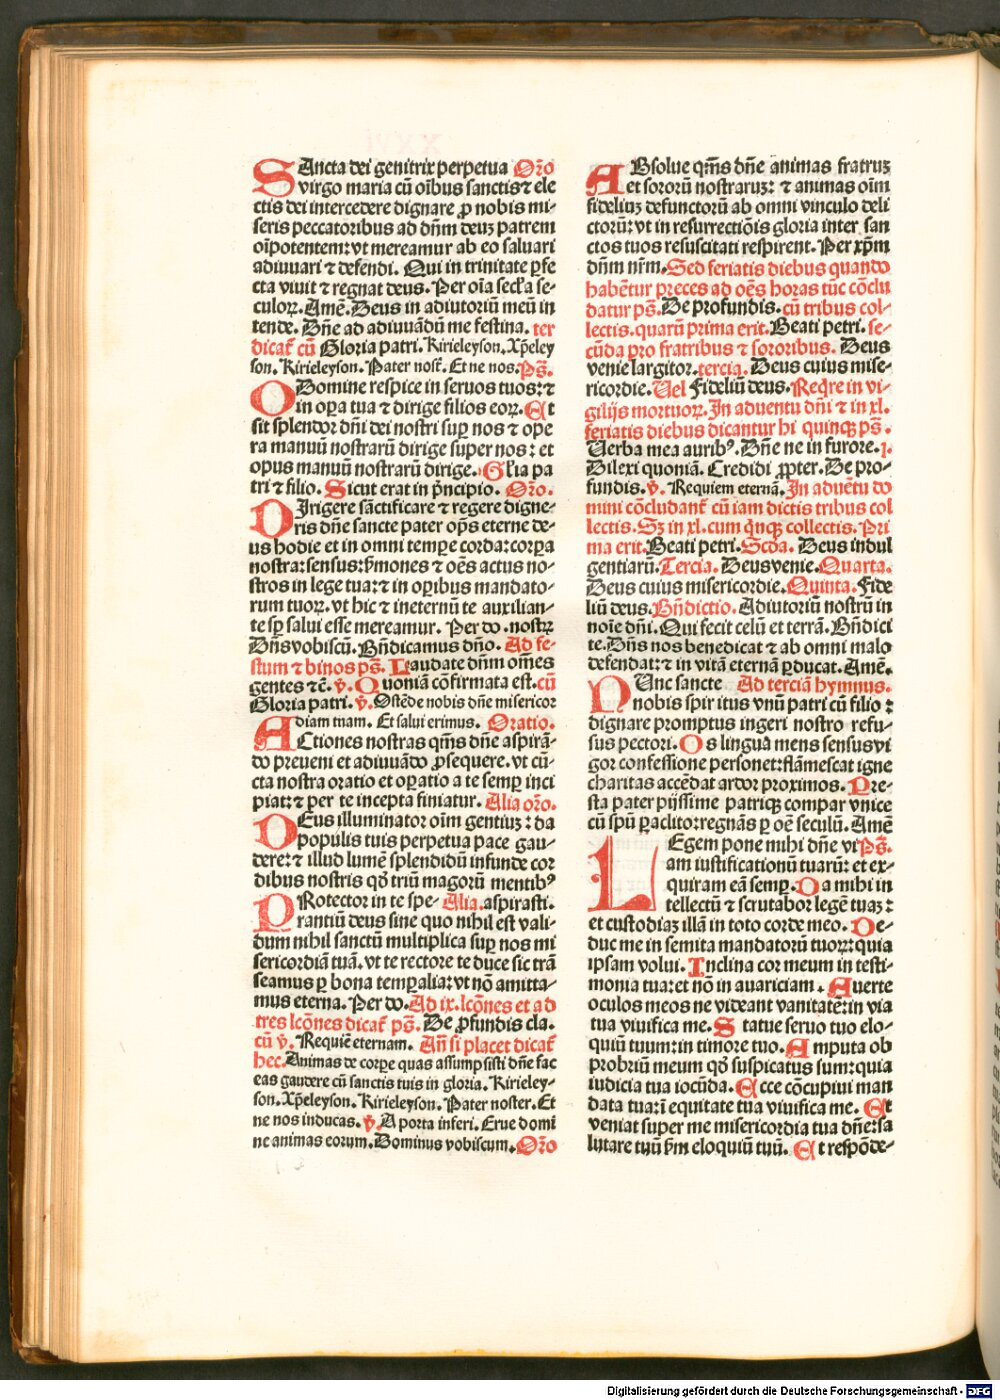 SAncta dei genitrix perpetua Orõ
virgo maria cũ oĩbus sanctis ⁊ ele
ctis dei intercedere dignare ꝓ nobis mi-
seris peccatoribus ad dñm deuʒ patrem
oĩpotentem: vt mereamur ab eo saluari
adiuuari ⁊ defendi. Qui in trinitate ꝑfe
cta viuit ⁊ regnat deus. Per oĩa secl̃a se-
culoꝝ. Amẽ. Deus in adiutoriũ meũ in
tende. Dñe ad adiuuãdũ me festina. ter
dicat̃ cũ Gloria patri. Kirieleyson. Xp̃eley
son. Kirieleyson. Pater nost̃. Et ne nos. Ps̃.
ODomine respice in seruos tuos: ⁊
in oꝑa tua ⁊ dirige filios eoꝝ. Et
sit splendor dñi dei nostri suꝑ nos ⁊ oꝑe
ra manuũ nostrarũ dirige super nos: et
opus manuũ nostrarũ dirige. Gl̃ia pa
tri ⁊ filio. Sicut erat in p̃ncipio. Orõ.
DIrigere sãctificare ⁊ regere digne-
ris dñe sancte pater op̃s eterne de-
us hodie et in omni tempe corda: corꝑa
nostra: sensus: ẜmones ⁊ oẽs actus no-
stros in lege tua: ⁊ in oꝑibus mandato-
rum tuoꝝ. vt hic ⁊ ineternũ te auxilian-
te sꝑ salui esse mereamur. Per do. nostꝝ
Dñs vobiscũ. Bñdicamus dño. Ad fe-
stum ⁊ binos ps̃. Laudate dñm om̃es
gentes ⁊c̃. v̾. Quoniã cõfirmata est. cũ
Gloria patri. v̾. Ostẽde nobis dñe misericor
diam tuam. Et salui erimus. Oratio.
ACtiones nostras qm̃s dñe aspirã-
do preueni et adiuuãdo ꝓsequere. vt cũ-
cta nostra oratio et oꝑatio a te semꝑ inci
piat: ⁊ per te incepta finiatur. Alia orõ.
DEus illuminator oĩm gentiuʒ: da
populis tuis perpetua pace gau-
dere: ⁊ illud lumẽ splendidũ infunde cor
dibus nostris qđ triũ magorũ mentibꝰ
PRotector in te spe- Alia. aspirasti.
rantiũ deus sine quo nihil est vali-
dum nihil sanctũ multiplica suꝑ nos mi
sericordiã tuã. vt te rectore te duce sic trã
seamus ꝑ bona temꝑalia: vt nõ amitta-
mus eterna. Per do. Ad ix. lcõnes et ad
tres lcõnes dicat̃ ps̃. De ꝓfundis cla.
cũ v̾. Requiẽ eternam. Añ si placet dicat̃
hec. Animas de corꝑe quas assumpsisti dñe fac
eas gaudere cũ sanctis tuis in gloria. Kirieley-
son. Xp̃eleyson. Kirieleyson. Pater noster. Et
ne nos inducas. v̾. A porta inferi. Erue domi
ne animas eorum. Dominus vobiscum. Orõ
ABsolue qm̃s dñe animas fratruʒ
et sororũ nostraruʒ: ⁊ animas oĩm
fideliuʒ defunctorũ ab omni vinculo deli
ctorũ: vt in resurrectiõis gloria inter san
ctos tuos resuscitati respirent. Per xp̃m
dñm nr̃m. Sed feriatis diebus quando
habẽtur preces ad oẽs horas tũc cõclu
datur ps̃. De profundis. cũ tribus col-
lectis. quarũ prima erit. Beati petri. se-
cũda pro fratribus ⁊ sororibus. Deus
venie largitor. tercia. Deus cuius mise-
ricordie. Uel Fideliũ deus. Reqr̃e in vi-
gilijs mortuoꝝ. In aduentu dñi ⁊ in xl.
feriatis diebus dicantur hi quinqꝫ ps̃.
Uerba mea auribꝰ. Dñe ne in furore. j.
Dilexi quoniã. Credidi ꝓpter. De pro-
fundis. v̾. Requiem eternã. In aduẽtu do
mini cõcludant̃ cũ iam dictis tribus col
lectis. Sʒ in xl. cum q̃nqꝫ collectis. Pri
ma erit. Beati petri. Scđa. Deus indul
gentiarũ. Tercia. Deus venie. Quarta.
Deus cuius misericordie. Quinta. Fide
liũ deus. Bñdictio. Adiutoriũ nostrũ in
noĩe dñi. Qui fecit celũ et terrã. Bñdici
te. Dñs nos benedicat ⁊ ab omni malo
defendat: ⁊ in vitã eternã ꝑducat. Amẽ.
NUnc sancte Ad terciã hymnus.
nobis spir itus vnũ patri cũ filio:
dignare promptus ingeri nostro refu-
sus pectori. Os linguã mens sensus vi
gor confessione personet: flãmescat igne
charitas accẽdat ardor proximos. Pre-
sta pater pijssime patriqꝫ compar vnice
cũ spũ ꝑaclito: regnãs ꝑ oẽ seculũ. Amẽ
LEgem pone mihi dñe vi Ps̃.
am iustificationũ tuarũ: et ex-
quiram eã semꝑ. Da mihi in
tellectũ ⁊ scrutabor legẽ tuaʒ:
et custodiaʒ illã in toto corde meo. De-
duc me in semita mandatorũ tuoꝝ: quia
ipsam volui. Inclina cor meum in testi-
monia tua: et nõ in auariciam. Auerte
oculos meos ne videant vanitatẽ: in via
tua viuifica me. Statue seruo tuo elo-
quiũ tuum: in timore tuo. Amputa ob
probriũ meum qđ suspicatus sum: quia
iudicia tua iocũda. Ecce cõcupiui man
data tua: ĩ equitate tua viuifica me. Et
veniat super me misericordia tua dñe: sa
lutare tuũ ẜm eloquiũ tuũ. Et respõde-
Digitalisierung gefördert durch die Deutsche Forschungsgemeinschaft - DFG